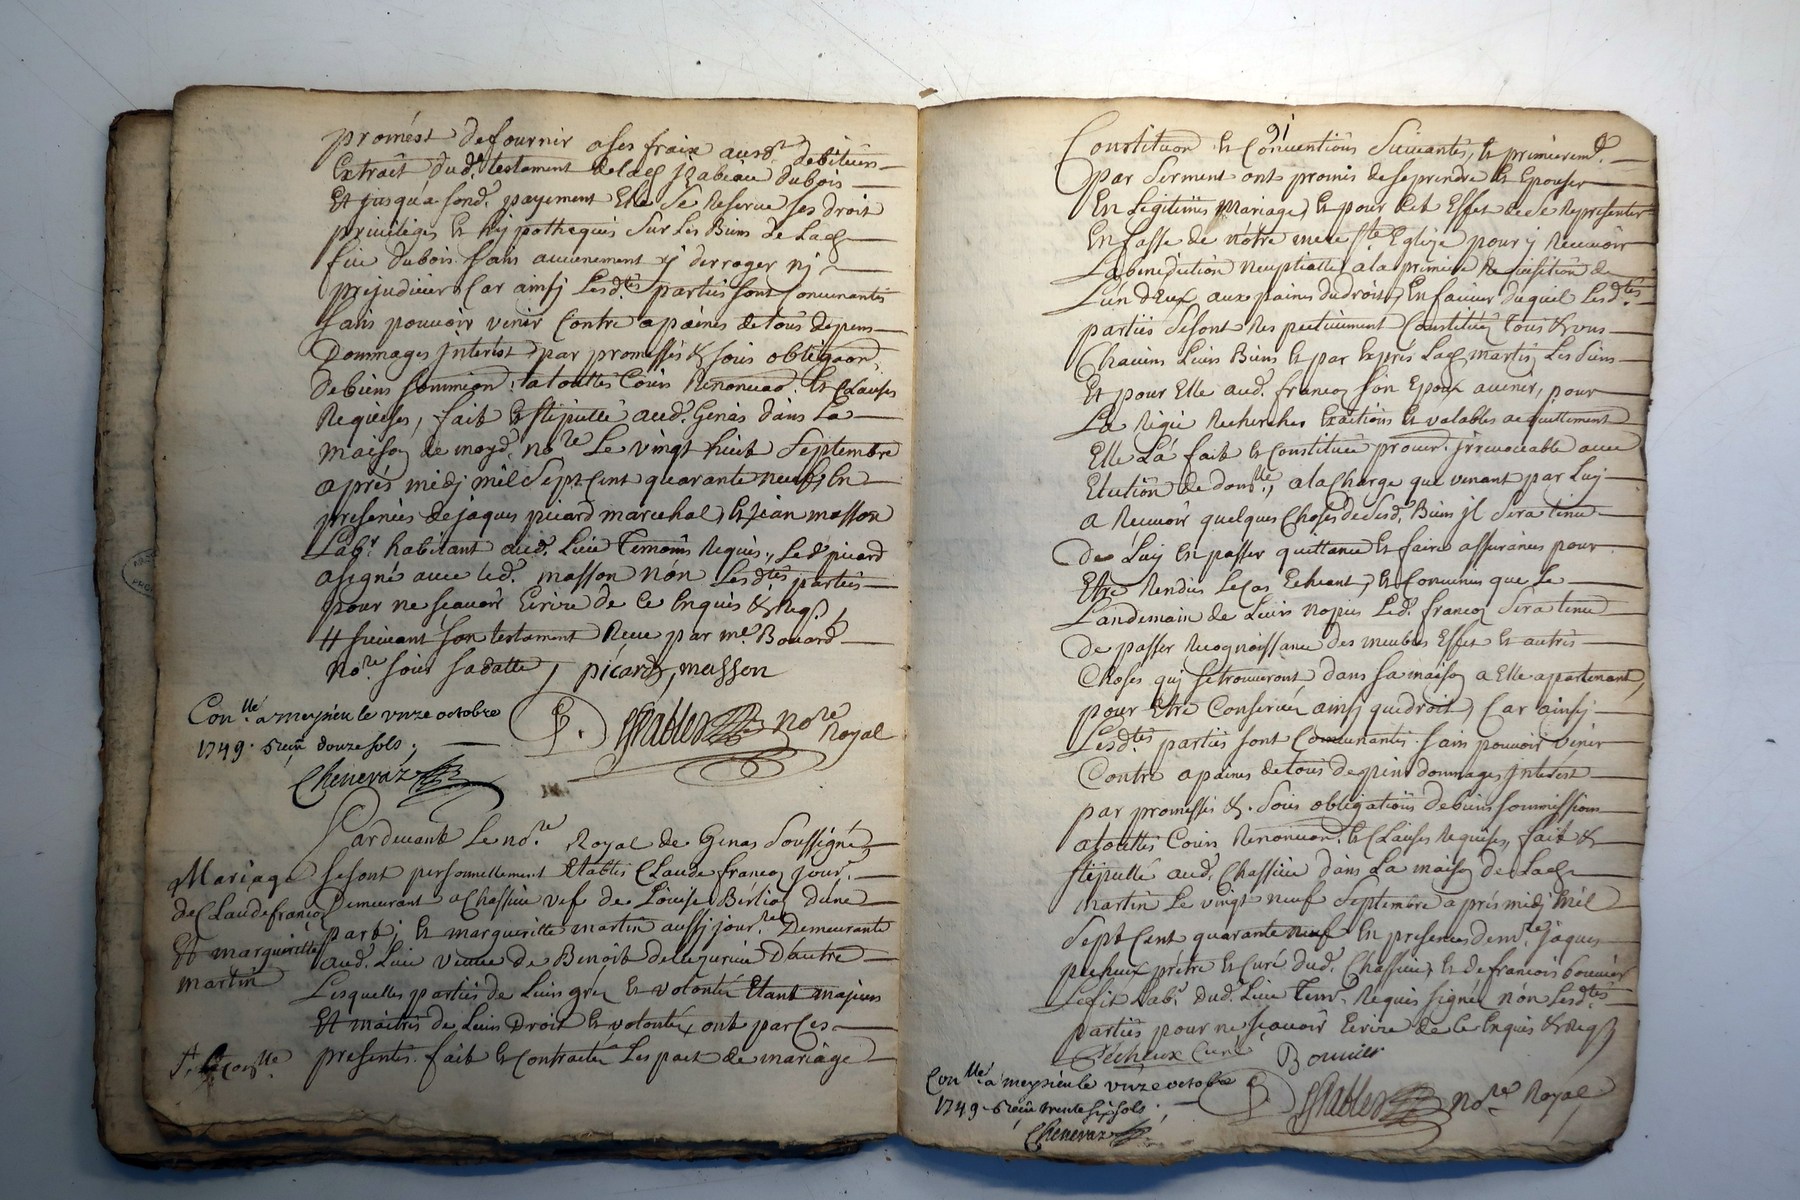 promést de fournir a ses fraix auxd.rs debiteurs
Extrait dud. testament de lad. Izabeau dubois
Et jusqu'a fond. payement Elle se Reserve ses droit
privileges et hÿpotheques sur Les Biens de Lad.
feüe dubois sans aucunement ÿ derroger nÿ
prejudicier, Car ainsÿ Lesd.tes parties sont Convenantes
sans pouvoir venir Contre a peines de tous depens
Dommages Interest, par promesses & sous obligaon.
de biens soumission. a touttes Cours Renonciaõ. Et Clauses
Requeses, fait Et stipullé aud. Genas dans La
maison de moyd. no.re Le vingt huit Septembre
aprés midj mil Sept Cent quarante neuf, En
presences de jaques picard marechal, Et jean masson
Lab.r habitant aud. Lieu Temoins Requis, Led. picard
a signé avec led. masson nón Lesd.tes parties
pour ne sçavoir Ecrire de Ce Enquis & Req.
# suivant son testament Receu par m.e Bouard
No.re sous sa datte, picard, masson
Con.llé a meyzieu le unze octobre
1749. Receu douze sols.
Chenevaz
no.re Royal
Pardevant Le no.re Royal de Genas Soussigné
Mariage
de Claude françois
Et margueritte
martin
se sont personnellement Etablis Claude françois jour.
Demeurant a Chassieu vef de Louise Berlioz d'une
part; Et margueritte martin aussÿ jour.re Demeurante
aud. Lieu veuve de Benoit d'autre
Lesquelles parties de Leurs gréz Et volonté Etant majeurs
Et maitres de Leurs Droit Et volontéz ont par Ces
presentes fait Et contracté Les pact de mariage
91
Constituon Et Conventions Suivantes, Et premierem.t
par Serment ont promis de se prendre Et Epouser
En Legitimes Mariage, Et pour Cet Effet de se Representer
En fasse de nótre mere S.te Eglize pour ÿ Recevoir
La benediction neuptialle a la premiere Requisition de
L'un d'Eux, aux peines du droit, En faveur duquel Lesd.tes
parties se sont Respectivement Constituéz Tous & uns
Chacuns Leurs Biens Et par Exprés Lad. martin Les Siens
Et pour Elle aud. françois son Epoux avenir, pour
La Regie Recherches Exactions Et valables acquittement
Elle L'a fait Et Constitué procur. jrrevocable avec
Election de dom.lle, a la Charge que venant par Luÿ
a Recevoir quelques Choses de sesd. Biens jl Sera tenu
de Luÿ En passer quittance Et faire assurances pour
Etre Rendus Le Cas Echeant, Et Convenu que Le
Landemain de Leurs nopces Led. françois Sera tenu
de passer Recognoissance des meubles Effet Et autres
Choses quj se trouveront dans sa maison a Elle apartenant,
pour Etre Conservéz ainsÿ que droit, Car ainsÿ
Lesd.tes parties sont Convenantes sans pouvoir venir
Contre a peines de tous depens dommages Interest
par promesses & sous obligations de biens soummissions
a touttes Cours Renonciaon. Et Clauses Requises, fait &
stipullé aud. Chassieu dans La maison de Lad.
martin Le vingt neuf Septembre aprés midj mil
Sept Cent quarante neuf En presences de m.re jaques
pecheux prétre Et Curé dud. Chassieu, Et de françois bouvier
Lefils Lab.r dud. Lieu Tem. Requis signéz nón Lesd.tes
parties pour ne sçavoir Ecrire de Ce Enquis & Req.
Pécheux Curé Bouvier
Con.llé a meyzieu le unze octobre
1749. Receu trente six sols.
Chenevaz
no.re Royal